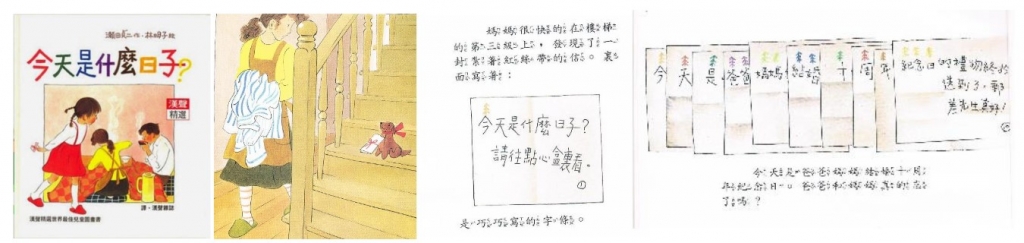 瀨田貞二作・林明子繪
今天是什麼日子？
漢聲
精選
譯・漢聲雜誌
漢聲精選世界最佳兒童圖畫書
媽媽很快的在樓梯
的第三級上，發現了一
封紮著紅絲帶的信。裏
面寫著：
今天是什麼日子？
請往點心盒裏看。
①
是巧巧寫的字條。
今天是爸爸媽媽結婚十周年
紀念日的禮物終於
送到了，郵
差先生真好！
今天是爸爸媽媽結婚十周
年紀念日。爸爸和媽媽真的忘
了嗎？